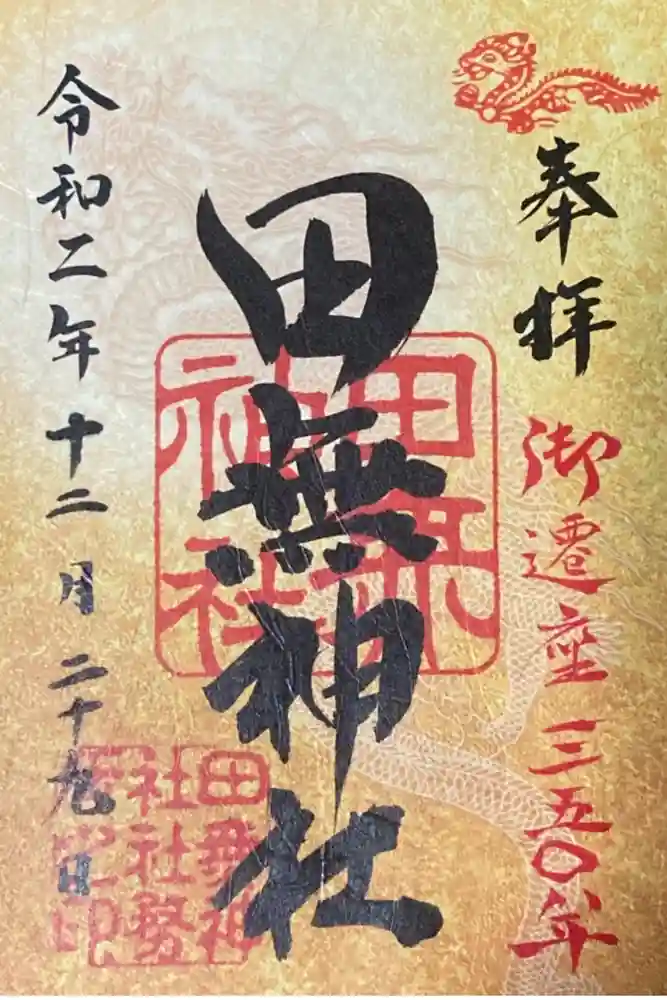 奉拝
御遷座三五〇年
田無神社
田無神社
田無神社社務所之印
令和二年十二月二十九日